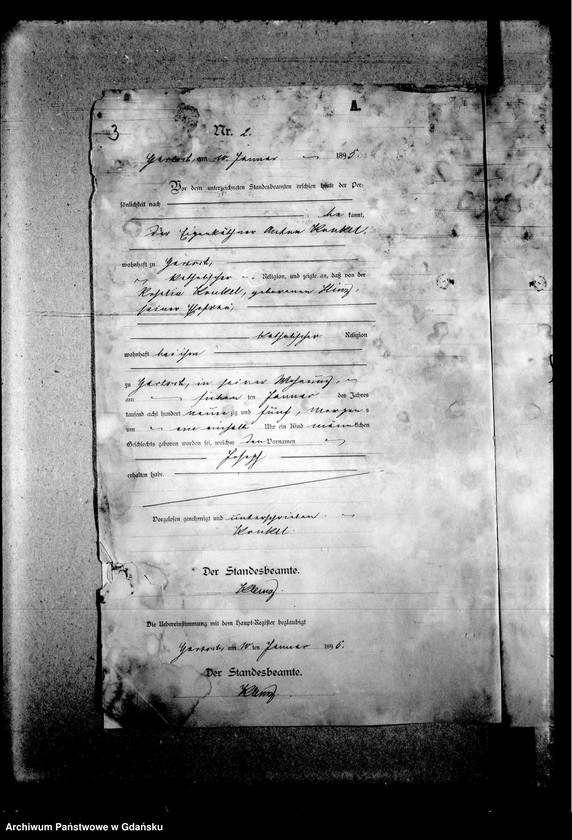 A.
3
Nr. 2.
am 10. Januar 1895.
Vor dem unterzeichneten Standesbeamten erschien heute, der Per-
sönlichkeit nach
be kannt,
der Eigenkäthner Anton Konkel,
wohnhaft zu
katholischer Religion, und zeigte an, daß von der
Rosalia Konkel, geborenen Hinz,
seiner Ehefrau,
katholischer Religion
wohnhaft bei ihm
zu in seiner Wohnung,
am sieben ten Januar des Jahres
tausend acht hundert neun zig und fünf, Morgen s
um ein einhalb Uhr ein Kind männ lichen
Geschlechts geboren worden sei, welches den Vornamen
Joseph
erhalten habe.
Vorgelesen, genehmigt und unterschrieben
Konkel.
Der Standesbeamte.
Die Uebereinstimmung mit dem Haupt-Register beglaubigt
am 10 ten Januar 1895.
Der Standesbeamte.
Archiwum Państwowe w Gdańsku